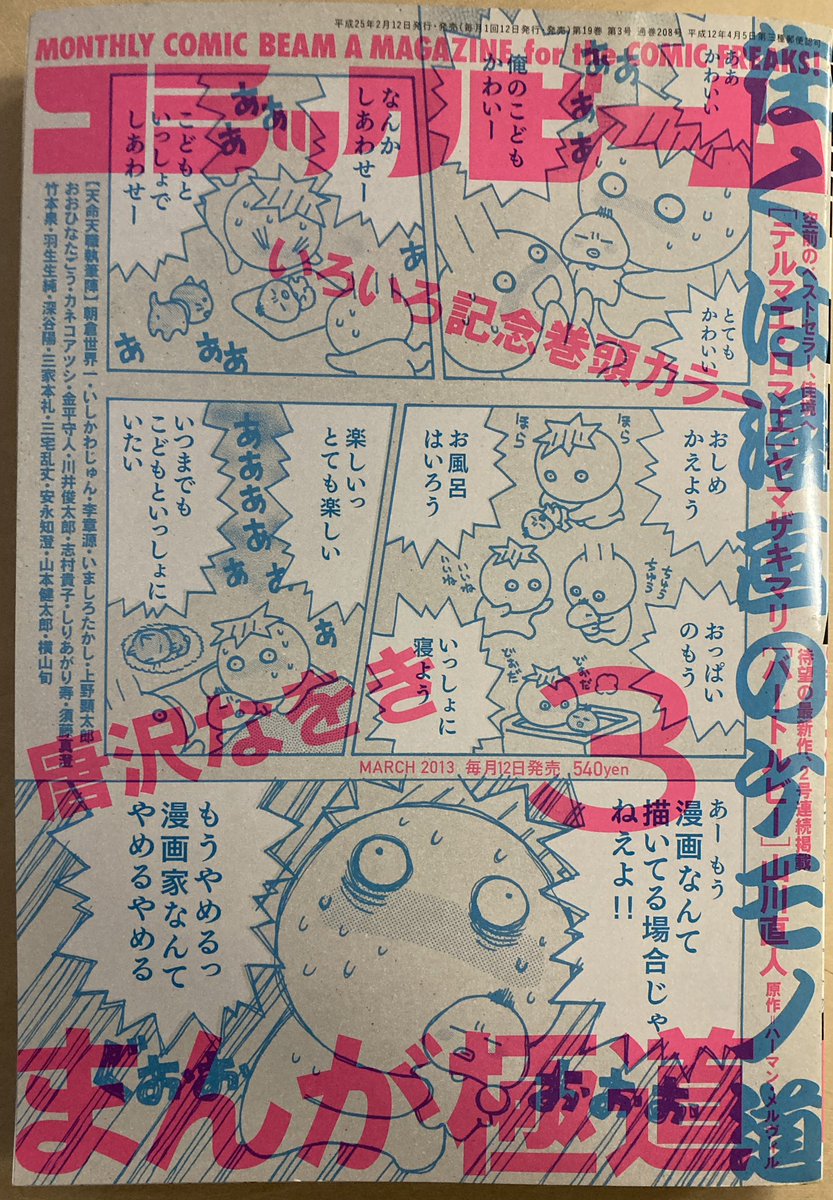 平成25年2月12日発行・発売(毎月1回12日発行・発売)第19巻 第3号 通巻208号 平成12年4月5日第三種郵便物認可
MONTHLY COMIC BEAM A MAGAZINE for the COMIC FREAKS!
コミックビーム
空前のベストセラー、佳境へ
「テルマエ・ロマエ」ヤマザキマリ
待望の最新作、2号連続掲載
「バートルビー」山川直人
原作=ハーマン・メルヴィル
ああ
かわいい
俺のこども
かわいー
ああ
ああ
とても
かわいい
なんか
しあわせー
こどもと
いっしょで
しあわせー
ああ
ああ
あ
ああ
あ
いろいろ記念巻頭カラー
【天命天職執筆陣】朝倉世界一・いしかわじゅん・李章源・いましろたかし・上野顕太郎
おおひなたごう・カネコアツシ・金平守人・川井俊太郎・志村貴子・しりあがり寿・須藤真澄
竹本泉・羽生生純・深谷陽・三家本礼・三宅乱丈・安永知澄・山本健太郎・横山旬
おしめ
かえよう
ほら
ほら
お風呂
はいろう
おっぱい
のもう
ちゅら
ちゅら
いいね
いいね
いっしょに
寝よう
楽しいっ
とても楽しい
ああああ
いつまでも
こどもといっしょに
いたい
あ
唐沢なをき
3
MARCH 2013 毎月12日発売 540yen
あーもう
漫画なんて
描いてる場合じゃ
ねえよ!!
もうやめるっ
漫画家なんて
やめるやめる
まんが極道